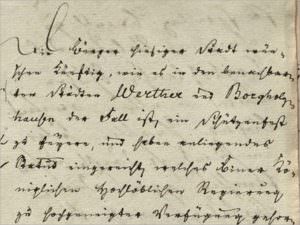 Die Bürger hiesiger Stadt wün-
schen künftig, wie es in den benachbar-
ten Städten Werther und Borgholz-
hausen der Fall ist, ein Schützenfest
zu feyern, und haben anliegendes
Statut eingereicht, welches Einer Kö-
niglichen Hochlöblichen Regierung
zu hochgeneigter Verfügung gehor-